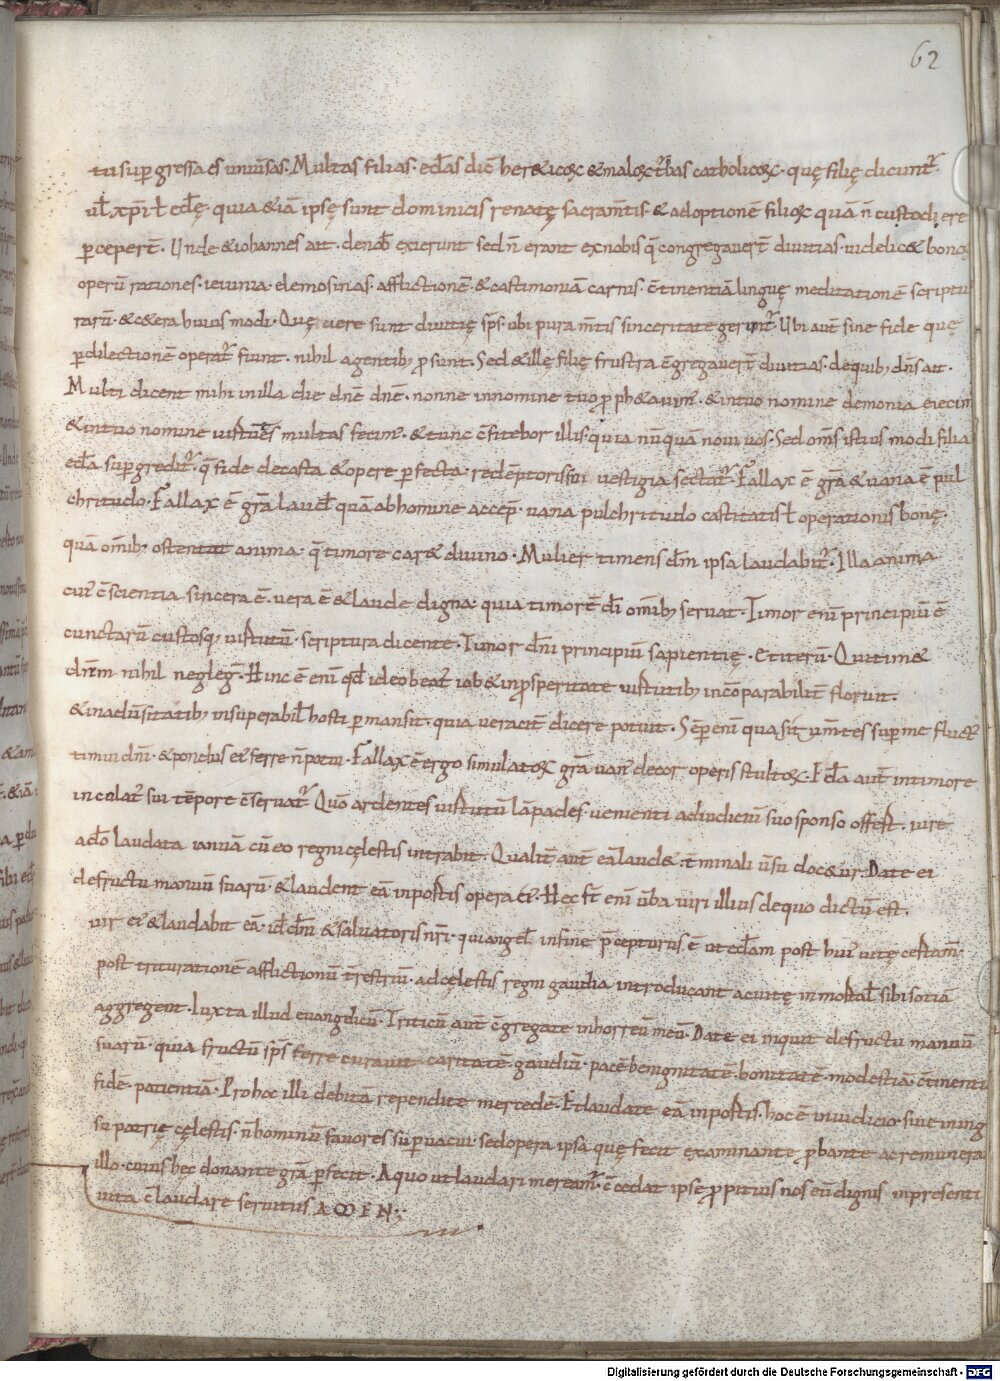 62
tu suꝑ gressa es uniu̅sas. Multas filias. eccl̅as dic̅ her&icoꝝ & maloꝝ t̅bas catholicoꝝ. quę filię dicunt᷑.
ul̅ xp̅i ł eccl̅ę. quia & ia̅ ipsę sunt dominicis renatę sacram̅tis. & adoptione̅ filioꝝ qua̅ n̅ custodiere
ꝑceper̅t. Unde & iohannes ait. de nob̅ exierunt sed n̅ erant ex nobis q̅ congregauer̅t diuitias. uidelic& bonoꝝ
operu̅ rationes. ieiunia. elemosinas. afflictione̅. & castimonia̅ carnis. c̅tinentia̅ linguę meditatione̅ scriptu
raru̅. & c&era huius modi. Quę uere sunt diuitię sp̅s. ubi pura m̅tis sinceritate gerunt᷑. Ubi aut̅ sine fide quę
ꝑ dilectione̅ operat᷑ fiunt. nihil agentib; ꝓsunt. Sed & illę filię frustra c̅gregauer̅t diuitias. de quib; dn̅s ait.
Multi dicent mihi in illa die dn̅e dn̅e. nonne in nomine tuo ꝓph&auim᷑. & in tuo nomine demonia eiecim᷑
& in tuo nomine uirtutes multas fecim᷑. & tunc c̅fitebor illis. quia nu̅qua̅ noui uos. Sed om̅s istius modi filia
eccl̅a suꝑgredit᷑. q̅ fide de casta & opere ꝑfecta. rede̅ptoris sui uestigia sectat᷑. Fallax e̅ gr̅a & uana e̅ pul
chritudo. Fallax e̅ gr̅a laud̅ qua̅ ab homine accep̅. uana pulchritudo castitatis ł operationis bonę.
qua̅ om̅ib; ostentat anima. q̅ timore car& diuino. Mulier timens dm̅ ipsa laudabit᷑. Illa anima
cui᷑ c̅scientia sincera e̅. uera e̅ & laude digna. quia timore̅ di̅ om̅ib; seruat. Timor eni̅ principiu̅ e̅
cunctaru̅ custosq; uirtutu̅. scriptura dicente. Timor dn̅i principiu̅ sapientię. Et iteru̅. Qui tim&
dn̅m nihil negleg̅. Hinc e̅ eni̅ qd̅ ideo beat᷑ iob & in ꝓsperitate uirtutib; inco̅parabilit̅ floruit.
& in adu̅sitatib; insuperabil̅ hosti ꝑmansit. quia ueracit̅ dicere potuit. Se̅ꝑ eni̅ quasi tum̅tes suꝑ me fluct᷑
timui dn̅m. & pondus ei᷑ ferre n̅ potui. Fallax e̅ ergo simulatoꝝ gr̅a uan᷑ decor operis stultoꝝ. Eccl̅a aut̅ in timore
incolat᷑ sui te̅pore c̅seruat᷑. Quo̅ ardentes uirtutu̅ la̅pades. uenienti ad iudiciu̅ suo sponso offert. iure
ad̅o laudata ianua̅ cu̅ eo regni cęlestis intrabit. Qualit̅ aut̅ ea̅ laud&. t̅minali u̅su doc& uir. Date ei
de fructu manuu̅ suaru̅. & laudent ea̅ in portis opera ei᷑. Hęc s̅t eni̅ u̅ba uiri illius de quo dictu̅ est.
uir ei᷑ & laudabit ea̅. id̅ dn̅i & saluatoris nr̅i. qui angel̅ in fine p̅cepturus e̅ ut eccl̅am post hui᷑ uitę certam̅
post trituratione̅ afflictionu̅ t̅restriu̅. ad cęlestis regni gaudia introducant ac uitę inmortal̅ sibi sotia̅
aggregent. Iuxta illud euangelicu̅. Triticu̅ aut̅ c̅gregate in horreu̅ meu̅. Date ei inquit de fructu manuu̅
suaru̅. quia fructu̅ sp̅s ferre curauit caritate̅. gaudiu̅. pace̅ benignitate̅. bonitate̅. modestia̅. c̅tinenti
fide̅. patientia̅. Pro hoc illi debita̅ rependite mercede̅. Et laudate ea̅ in portis. hoc e̅ in iudicio. siue in ing
su patrię cęlestis. n̅ hominu̅ fauores suꝑuacui. sed opera ipsa quę fecit examinante ꝓbante ac remunera
illo. cuius hęc donante gr̅a ꝑfecit. A quo ut laudari meream᷑. c̅cedat ipse ꝓpitius nos eu̅ dignis in presenti
uita c̅laudare seruitus. AMEN:;
Digitalisierung gefördert durch die Deutsche Forschungsgemeinschaft - DFG